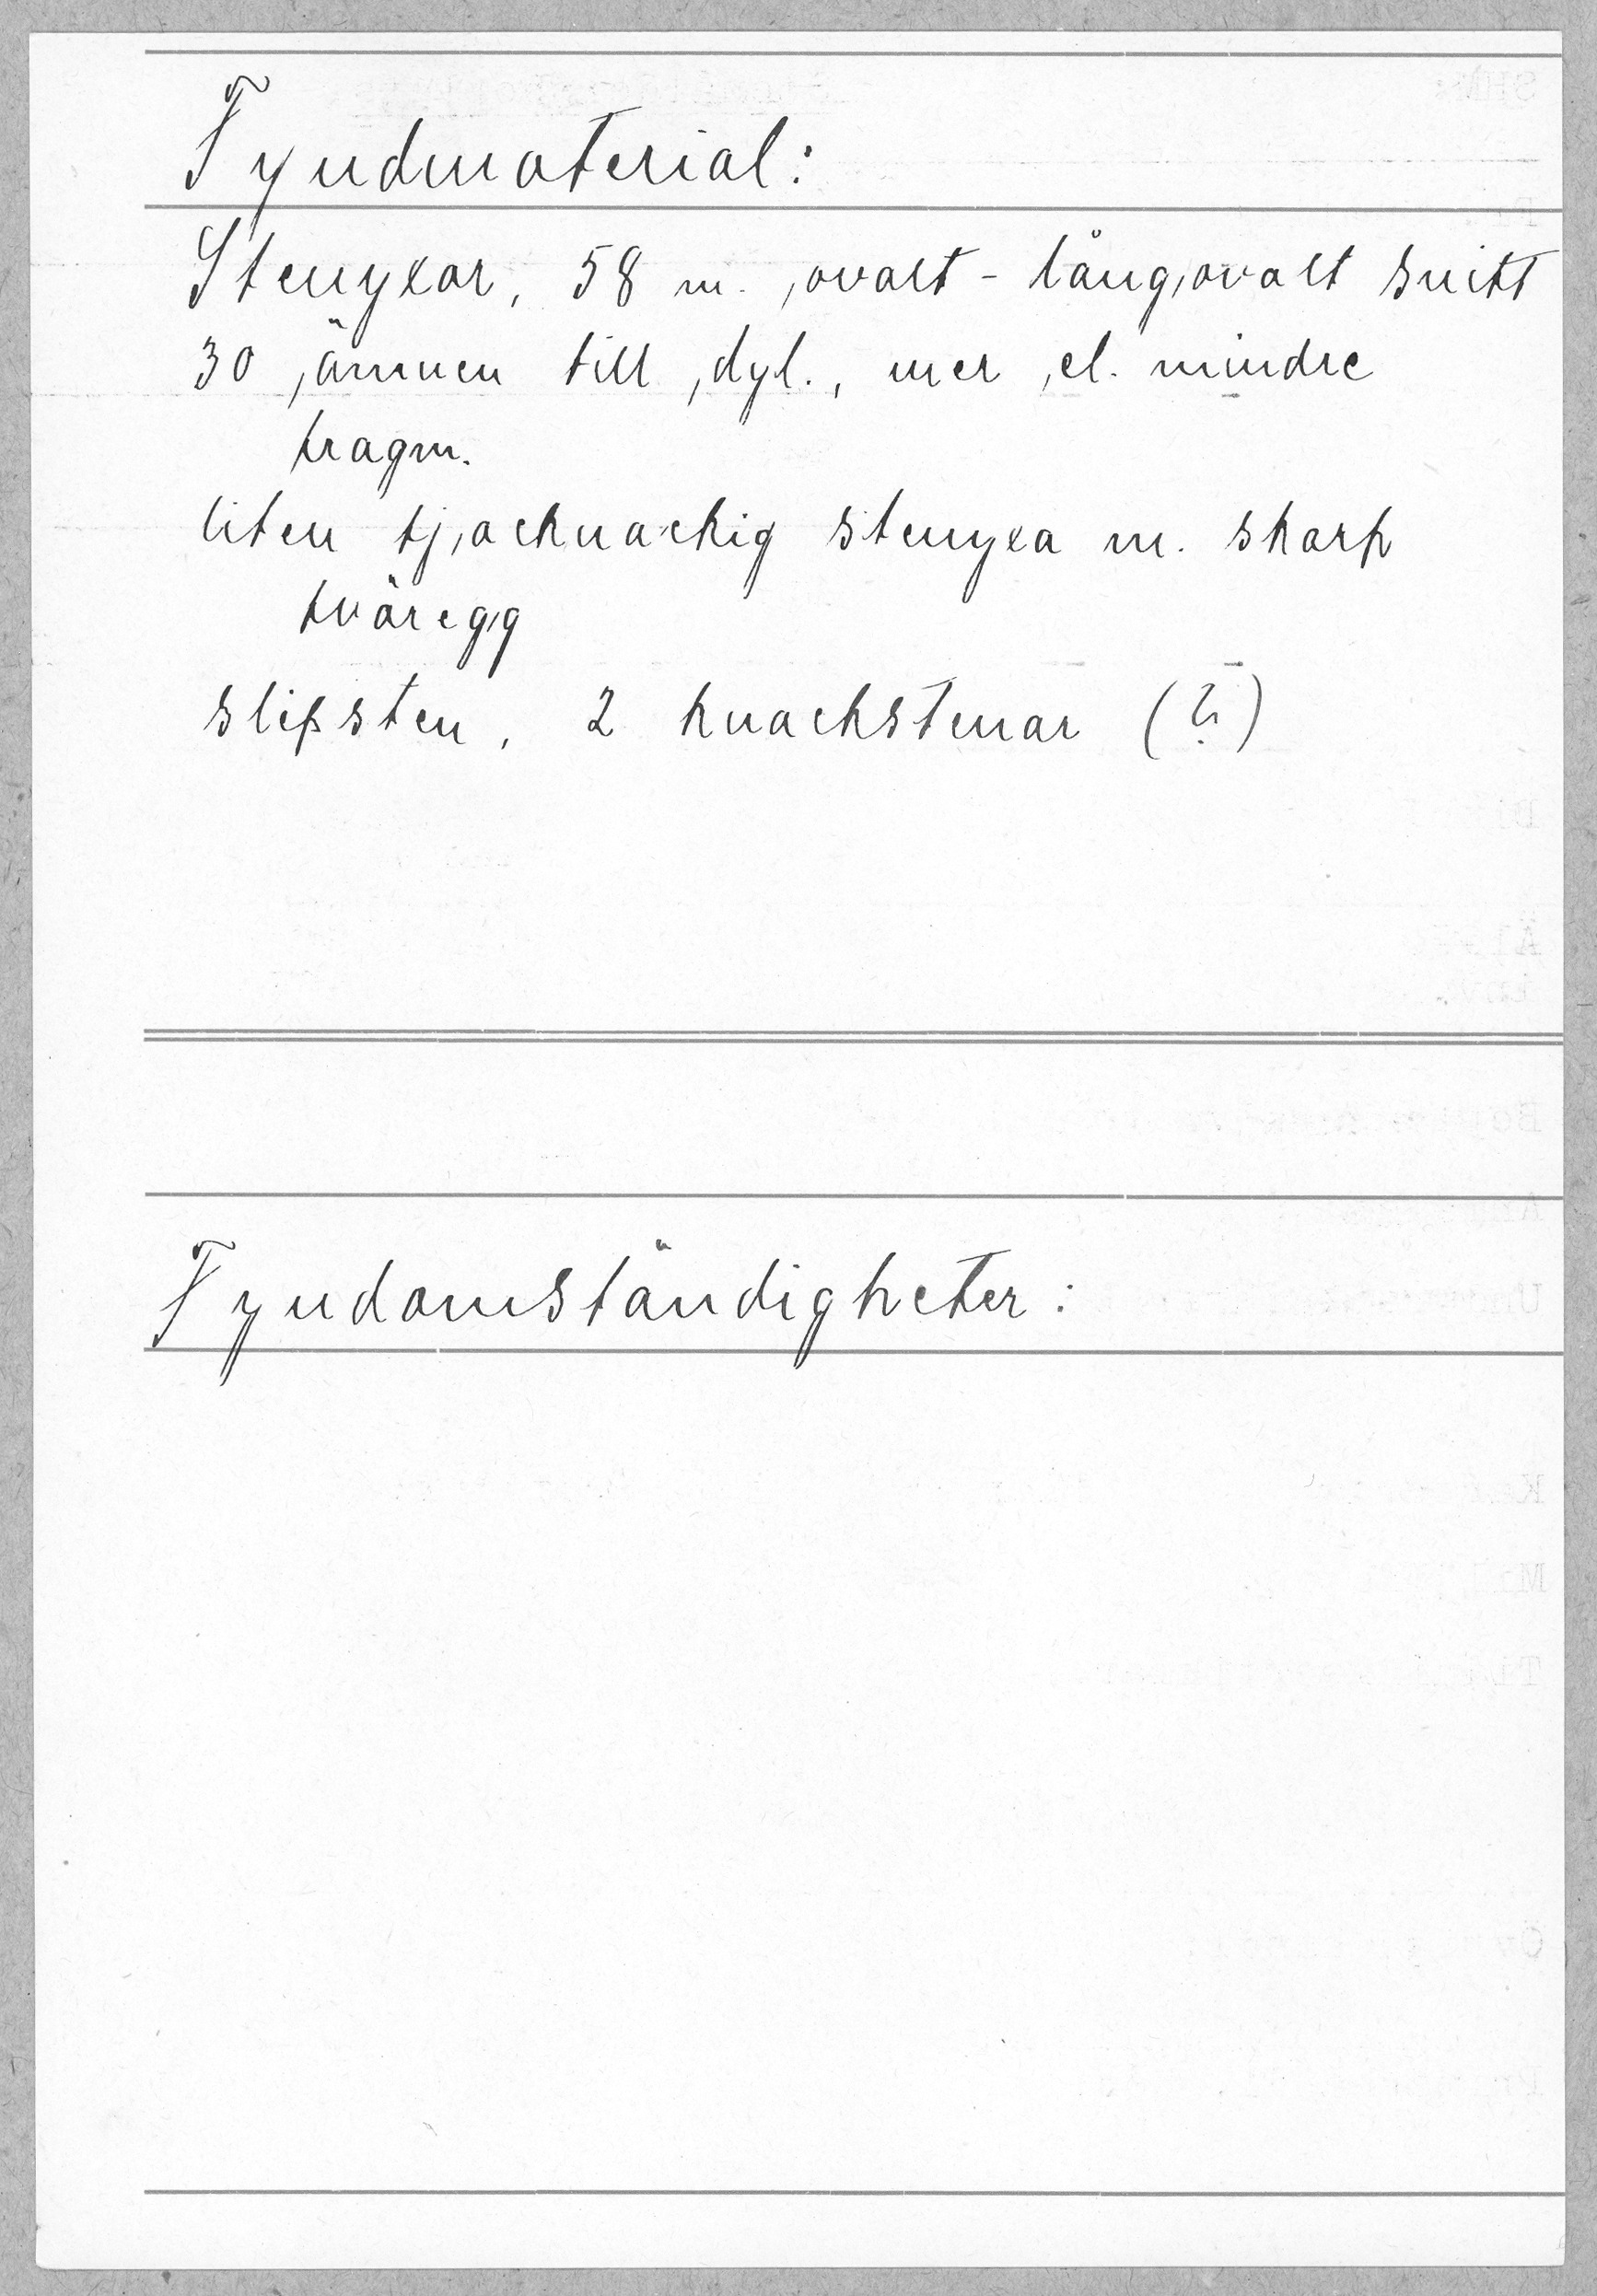 Fyndmaterial:
Stenyxor, 58 m. ovalt - långovalt snitt
30 ämnen till dyl., mer el. mindre
fragm.
liten tjocknackig stenyxa m. skarp
tväregg
slipsten, 2 knackstenar (?)
Fyndomständigheter: